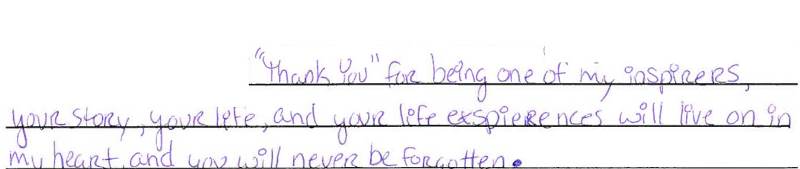 "Thank You" for being one of my inspirers,
your story, your life, and your life exspierences will live on in
my heart, and you will never be forgotten.